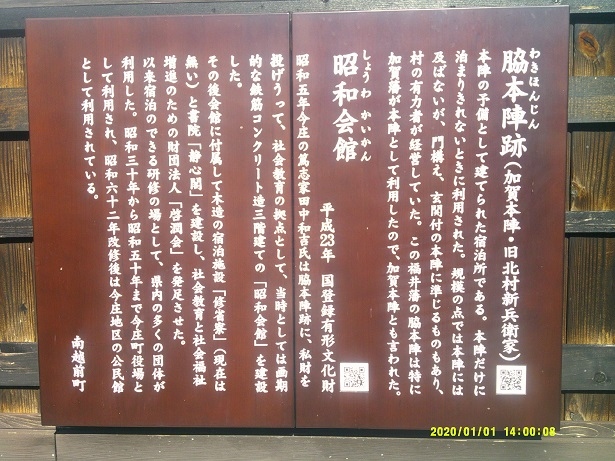 わきほんじん
脇本陣跡(加賀本陣・旧北村新兵衛家)
本陣の予備として建てられた宿泊所である。本陣だけに
泊まりきれないときに利用された。規模の点では本陣には
及ばないが、門構え、玄関付の本陣に準じるものもあり、
村の有力者が経営していた。この福井藩の脇本陣は特に
加賀藩が本陣として利用したので、加賀本陣とも言われた。
しょうわ かいかん
昭和会館
平成23年 国登録有形文化財
昭和五年今庄の篤志家田中和吉氏は脇本陣跡に、私財を
投げうって、社会教育の拠点として、当時としては画期
的な鉄筋コンクリート造三階建ての「昭和会館」を建設
した。
その後会館に付属して木造の宿泊施設「修省寮」(現在は
無い)と書院「静心閣」を建設し、社会教育と社会福祉
増進のための財団法人「啓潤会」を発足させた。
以来宿泊のできる研修の場として、県内の多くの団体が
利用した。昭和三十年から昭和五十年まで今庄町役場と
して利用され、昭和六十二年改修後は今庄地区の公民館
として利用されている。
南越前町
2020/01/01 14:00:08